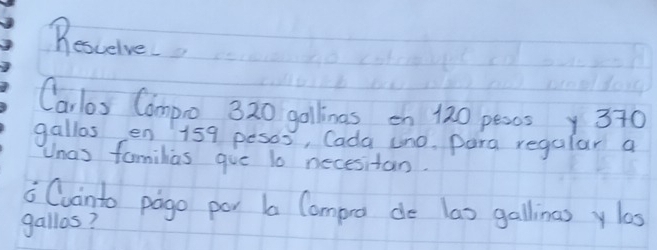 Resuelve.
Carlos Compro 320 gallinas en 120 pesos y 370
gallos en 159 pesos, Cada uno. para regalar a
Unas familias que lo necesitan.
¿Cuánto págo por la Compra de las gallinas y los
gallos?